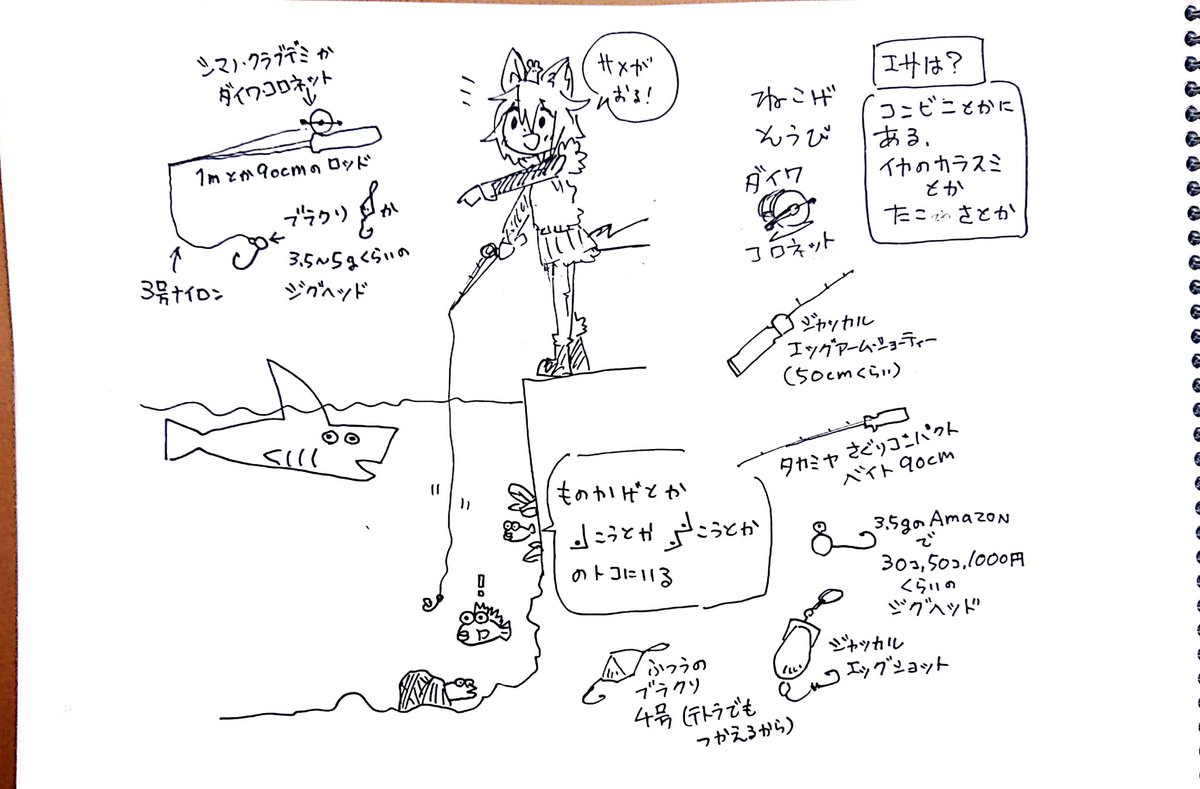 シマノ・クラブデミか
ダイワ・コロネット
1mとか90cmのロッド
ブラクリ か
3.5~5gくらいの
ジグヘッド
3号ナイロン
サメが
おる!
ねこげ
そうび
ダイワ
コロネット
エサは?
コンビニとかに
ある、
イカのカラスミ
とか
たこ さとか
ジャッカル
エッグアーム・ショーティー
(50cmくらい)
タカミヤ さぐりコンパクト
ベイト 90cm
3.5gのAmazon
で
30コ,50コ,1000円
くらいの
ジグヘッド
ジャッカル
エッグショット
ものかげとか
こうとか こうとか
のトコにいる
!
ふつうの
ブラクリ
4号 (テトラでも
つかえるから)